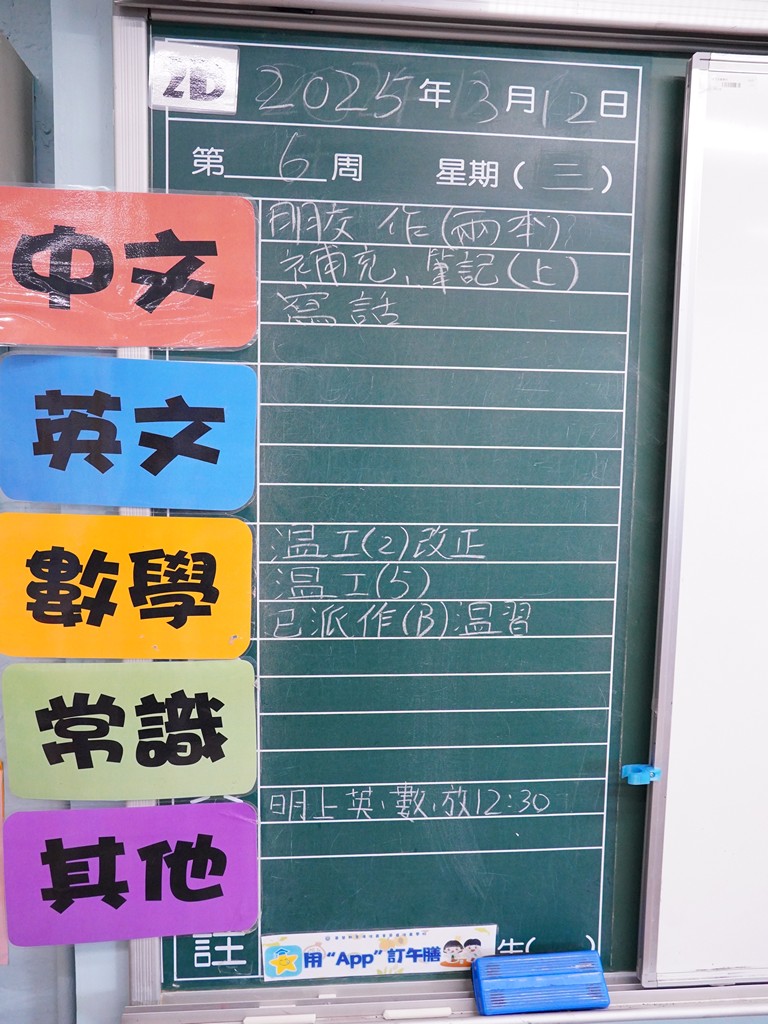 2D 2025年3月12日
第6周 星期(三)
中文
朋友 作(兩本)
補充、筆記(上)
寫話
英文
數學
温工(2)改正
温工(5)
已派作(B)温習
常識
其他
明上英、數,放12:30
註
用“App”訂午膳